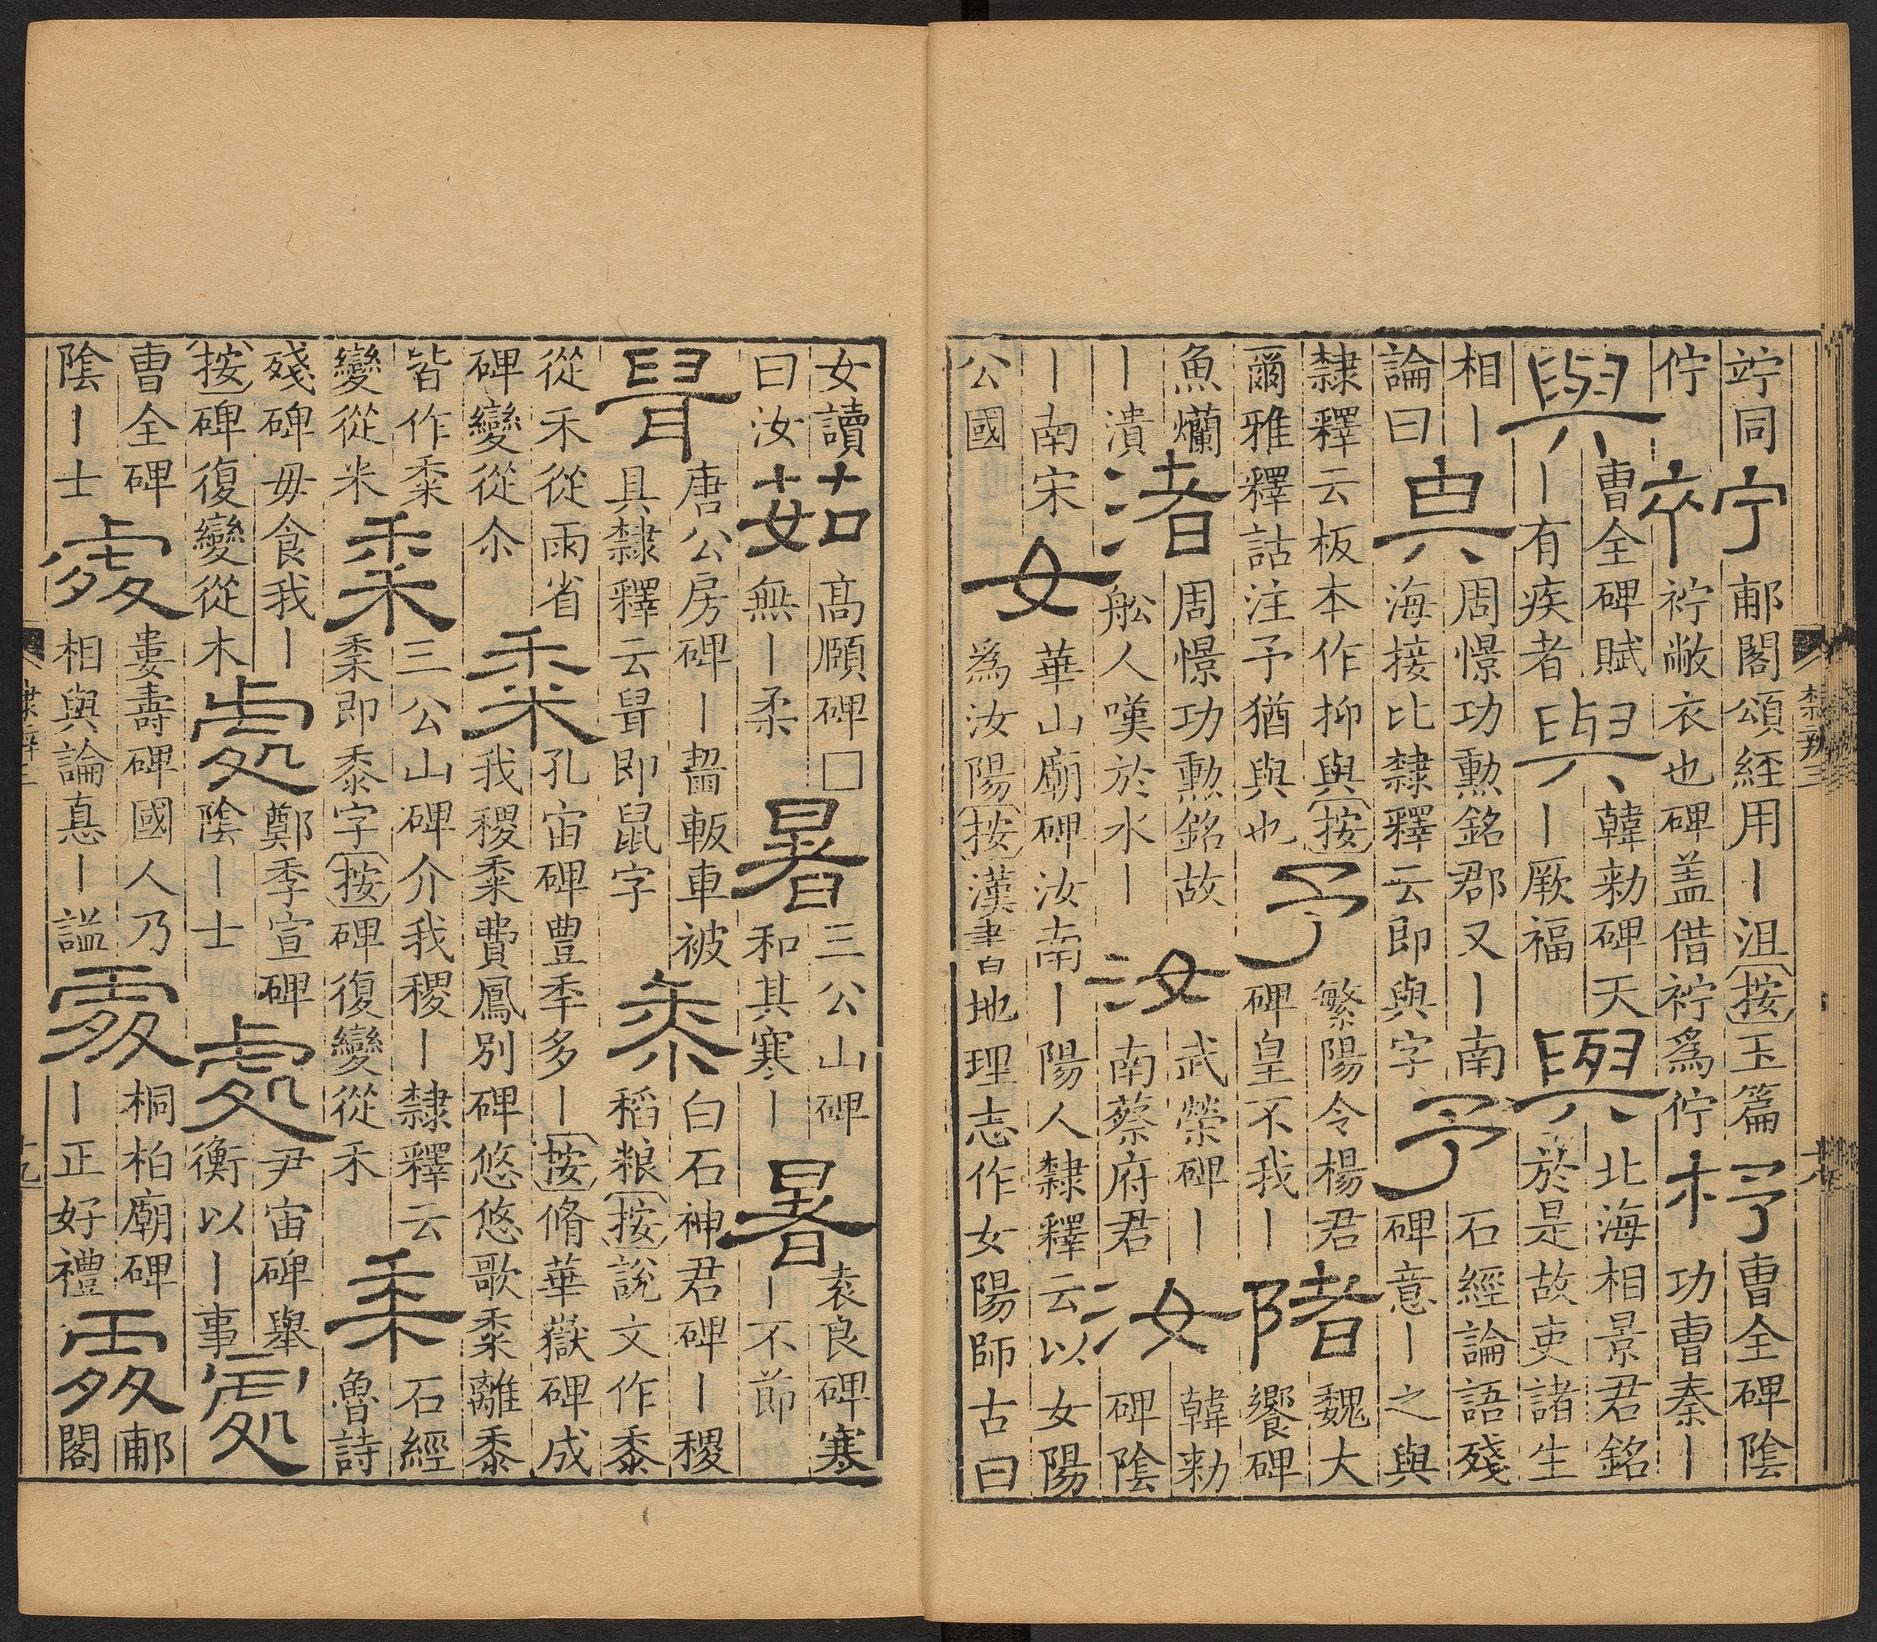 竚同
佇
郙閣頌經用丨沮按玉篇
敝衣也碑盖借爲佇
杼
曹全碑陰
功曹秦丨
與
曹全碑賦
丨有疾者
與
韓勑碑天
丨厥福
與
北海相景君銘
於是故吏諸生
相丨
論曰
周憬功勳銘郡又丨南
海接比隸釋云即與字
予
石經論語殘
碑意丨之與
隸釋云板本作抑與按
爾雅釋詁注予猶與也
予
繁陽令楊君
碑皇不我丨
陼
魏大
饗碑
魚爤
丨潰
渚
周憬功勳銘故
舩人嘆於水丨
汝
武榮碑丨
南蔡府君
汝
韓勑
碑陰
丨南宋
公國
女
華山廟碑汝南丨陽人隸釋云以女陽
爲汝陽按漢書地理志作女陽師古曰
隸辨三
女讀
曰汝
茹
高頤碑□
無丨柔
暑
三公山碑
和其寒丨
暑
袁良碑寒
丨不節
唐公房碑丨齧車被
具隸釋云即鼠字
黍
白石神君碑丨稷
稻粮按說文作黍
從禾從雨省
碑變從氺
黍
孔宙碑豐季多丨按脩華嶽碑成
我稷黍費鳳別碑悠悠歌黍離黍
皆作桼
變從米
黍
三公山碑介我稷丨隸釋云
桼即黍字按碑復變從禾
黍
石經
魯詩
殘碑毋食我丨
按碑復變從木
處
鄭季宣碑
陰丨士
處
尹宙碑舉
衡以丨事
處
曹全碑
陰丨士
處
婁壽碑國人乃
相與論悳丨謚
處
桐柏廟碑
丨正好禮
處
郙
閣